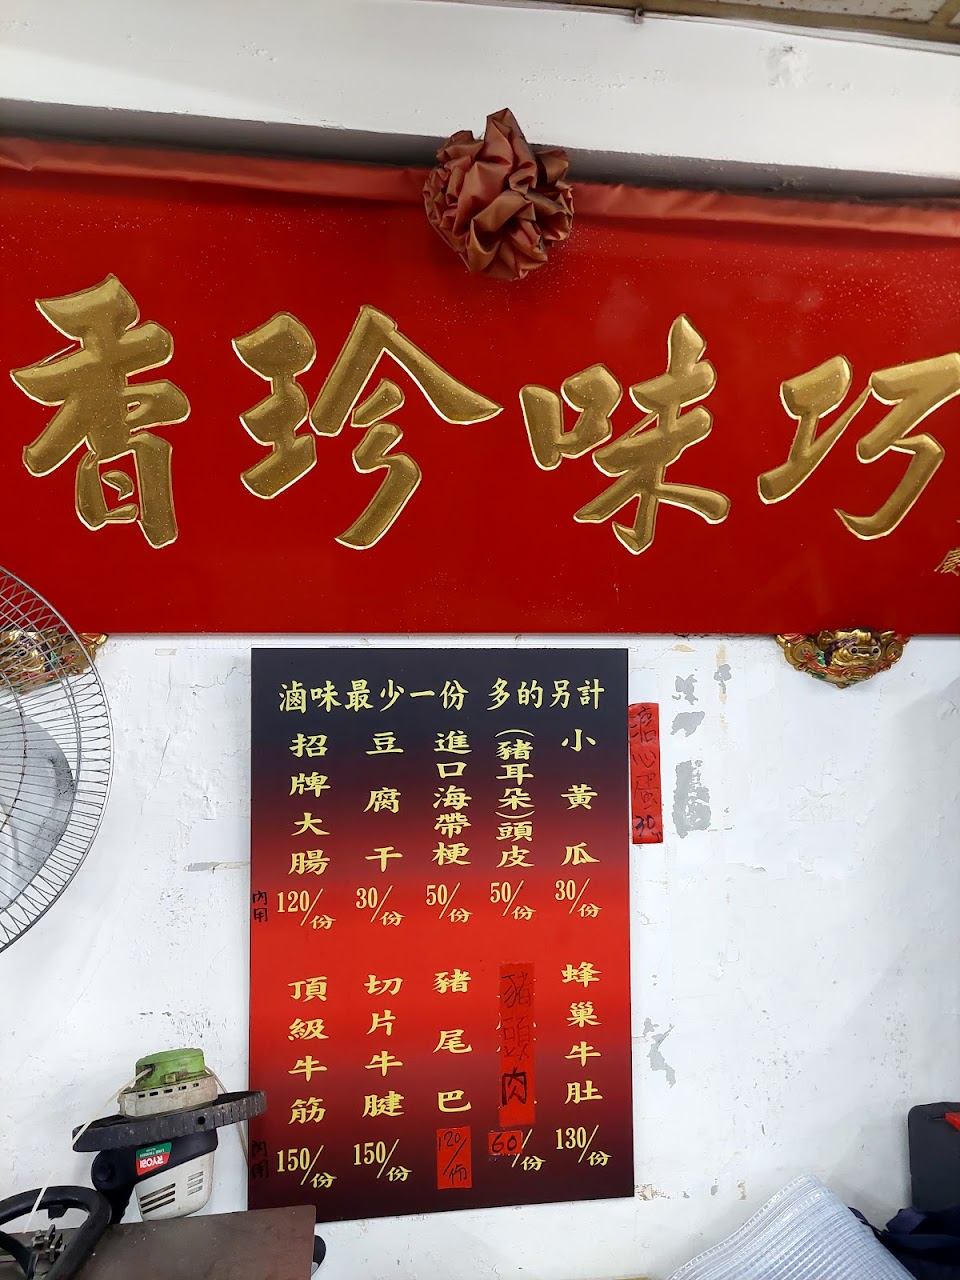 香珍味巧
慶
滷味最少一份 多的另計
小黃瓜
30/份
(豬耳朵)頭皮
50/份
進口海帶梗
50/份
豆腐干
30/份
招牌大腸
120/份
內用
蜂巢牛肚
130/份
豬頭肉
60/份
豬尾巴
120/份
切片牛腱
150/份
頂級牛筋
150/份
內用
溏心蛋 30
RYOBI